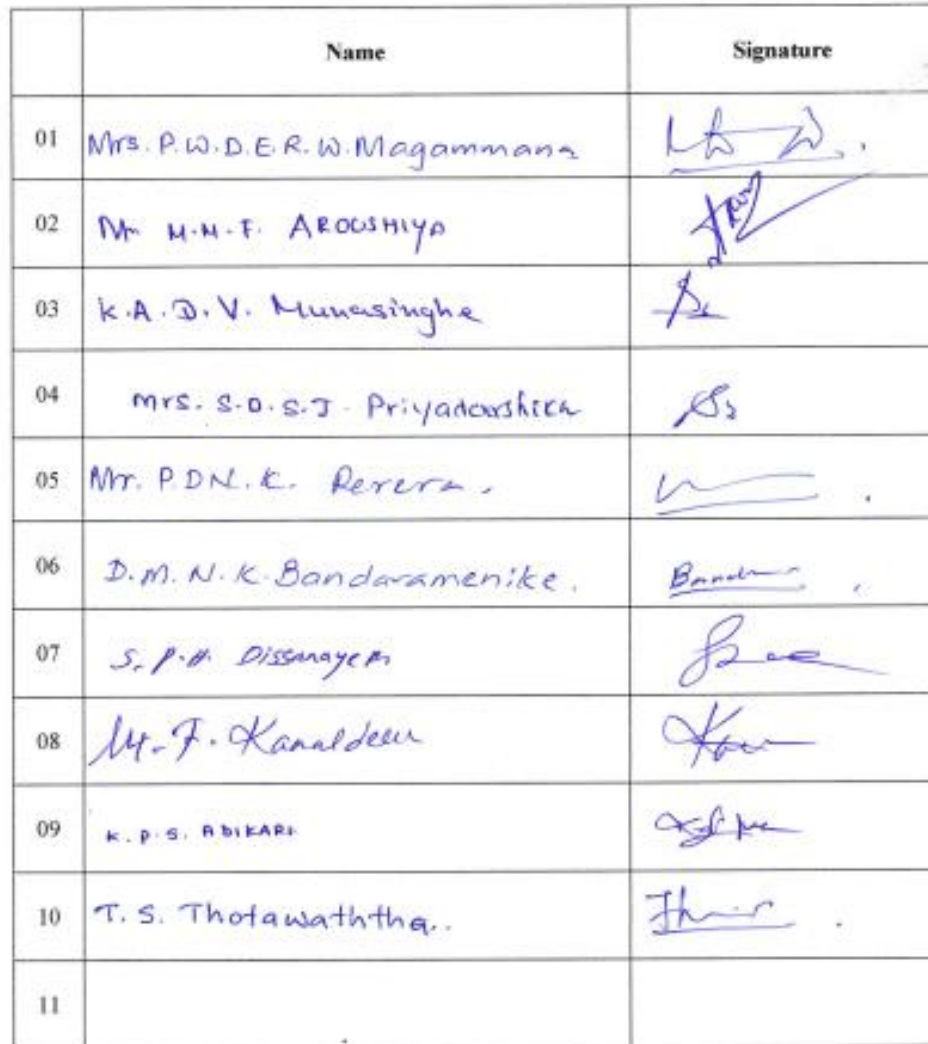 Name Signature
01 Mrs. P.W.D.E.R.W. Magammana
02 M.M.F. AROOSHIYA
03 K.A.D.V. Munasinghe
04 Mrs. S.D.S.J. Priyadarshika
05 Mr. P.D.N.K. Perera.
06 D.M.N.K. Bandaramenike.
07 S.P.A. Dissanayake
08 M.F.
09 K.P.S. ADIKARI
10 T.S. Thotawaththa..
11